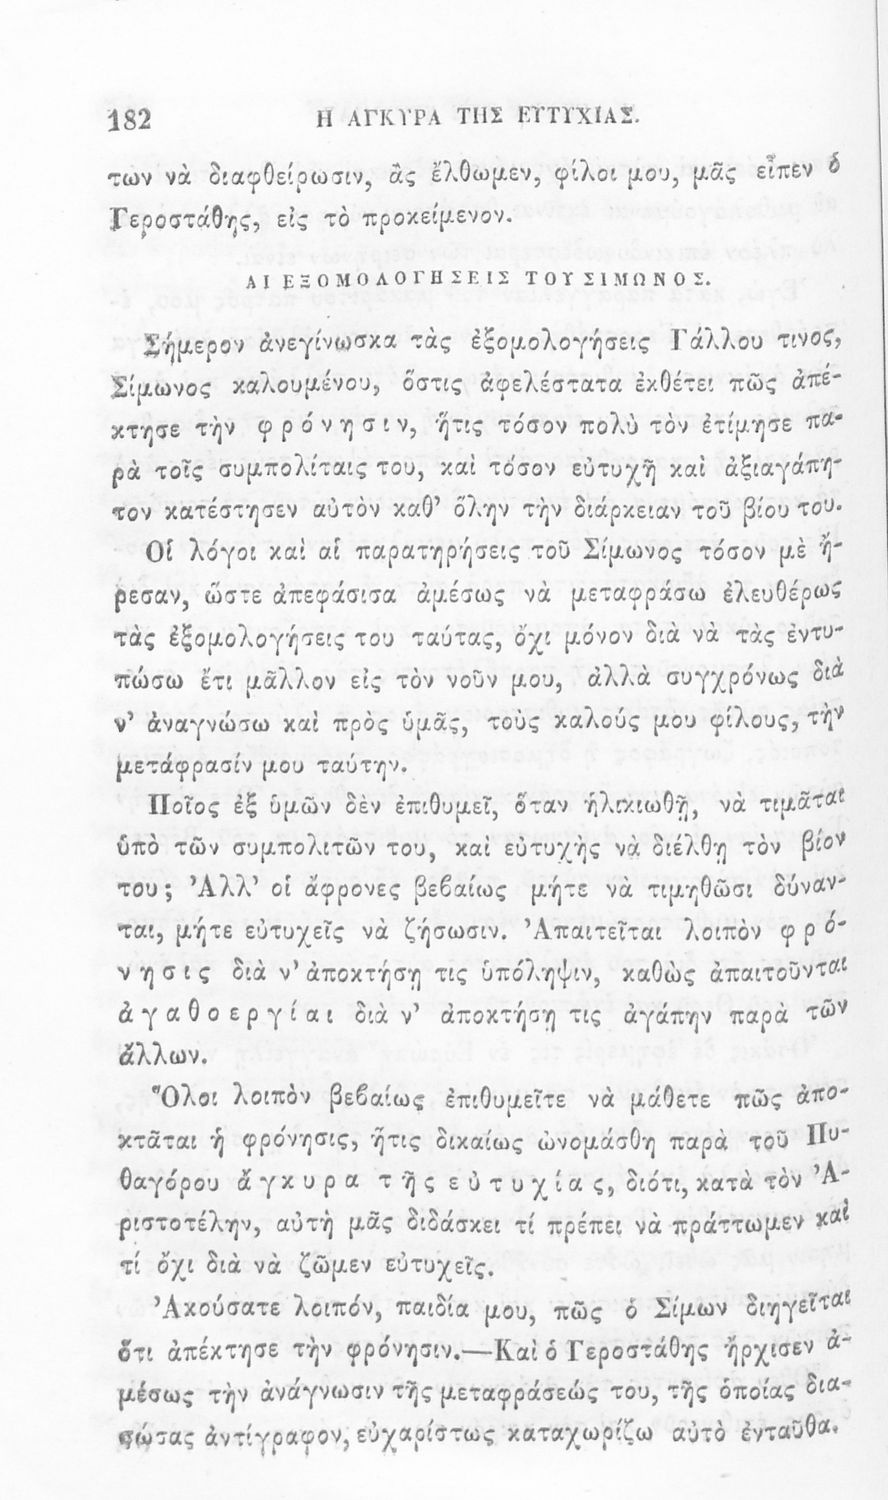 182 Η ΑΓΚΥΡΑ ΤΗΣ ΕΥΤΥΧΙΑΣ.
των νὰ διαφθείρωσιν, ἂς ἔλθωμεν, φίλοι μου, μᾶς εἶπεν ὁ
Γεροστάθης, εἰς τὸ προκείμενον.
ΑΙ ΕΞΟΜΟΛΟΓΗΣΕΙΣ ΤΟΥ ΣΙΜΩΝΟΣ.
Σήμερον ἀνεγίνωσκα τὰς ἐξομολογήσεις Γάλλου τινος,
Σίμωνος καλουμένου, ὅστις ἀφελέστατα ἐκθέτει πῶς ἀπέ-
κτησε τὴν φρόνησιν, ἥτις τόσον πολὺ τὸν ἐτίμησε πα-
ρὰ τοῖς συμπολίταις του, καὶ τόσον εὐτυχῆ καὶ ἀξιαγάπη-
τον κατέστησεν αὐτὸν καθ’ ὅλην τὴν διάρκειαν τοῦ βίου του.
Οἱ λόγοι καὶ αἱ παρατηρήσεις τοῦ Σίμωνος τόσον μὲ ἤ-
ρεσαν, ὥστε ἀπεφάσισα ἀμέσως νὰ μεταφράσω ἐλευθέρως
τὰς ἐξομολογήσεις του ταύτας, ὄχι μόνον διὰ νὰ τὰς ἐντυ-
πώσω ἔτι μᾶλλον εἰς τὸν νοῦν μου, ἀλλὰ συγχρόνως διὰ
ν’ ἀναγνώσω καὶ πρὸς ὑμᾶς, τοὺς καλούς μου φίλους, τὴν
μετάφρασίν μου ταύτην.
Ποῖος ἐξ ὑμῶν δὲν ἐπιθυμεῖ, ὅταν ἡλικιωθῇ, νὰ τιμᾶται
ὑπὸ τῶν συμπολιτῶν του, καὶ εὐτυχὴς νὰ διέλθῃ τὸν βίον
του; Ἀλλ’ οἱ ἄφρονες βεβαίως μήτε νὰ τιμηθῶσι δύναν-
ται, μήτε εὐτυχεῖς νὰ ζήσωσιν. Ἀπαιτεῖται λοιπὸν φρό-
νησις διὰ ν’ ἀποκτήσῃ τις ὑπόληψιν, καθὼς ἀπαιτοῦνται
ἀγαθοεργίαι διὰ ν’ ἀποκτήσῃ τις ἀγάπην παρὰ τῶν
ἄλλων.
Ὅλοι λοιπὸν βεβαίως ἐπιθυμεῖτε νὰ μάθετε πῶς ἀπο-
κτᾶται ἡ φρόνησις, ἥτις δικαίως ὠνομάσθη παρὰ τοῦ Πυ-
θαγόρου ἄγκυρα τῆς εὐτυχίας, διότι, κατὰ τὸν Ἀ-
ριστοτέλην, αὐτὴ μᾶς διδάσκει τί πρέπει νὰ πράττωμεν καὶ
τί ὄχι διὰ νὰ ζῶμεν εὐτυχεῖς.
Ἀκούσατε λοιπόν, παιδία μου, πῶς ὁ Σίμων διηγεῖται
ὅτι ἀπέκτησε τὴν φρόνησιν.—Καὶ ὁ Γεροστάθης ἤρχισεν ἀ-
μέσως τὴν ἀνάγνωσιν τῆς μεταφράσεώς του, τῆς ὁποίας δια-
σώσας ἀντίγραφον, εὐχαρίστως καταχωρίζω αὐτὸ ἐνταῦθα.